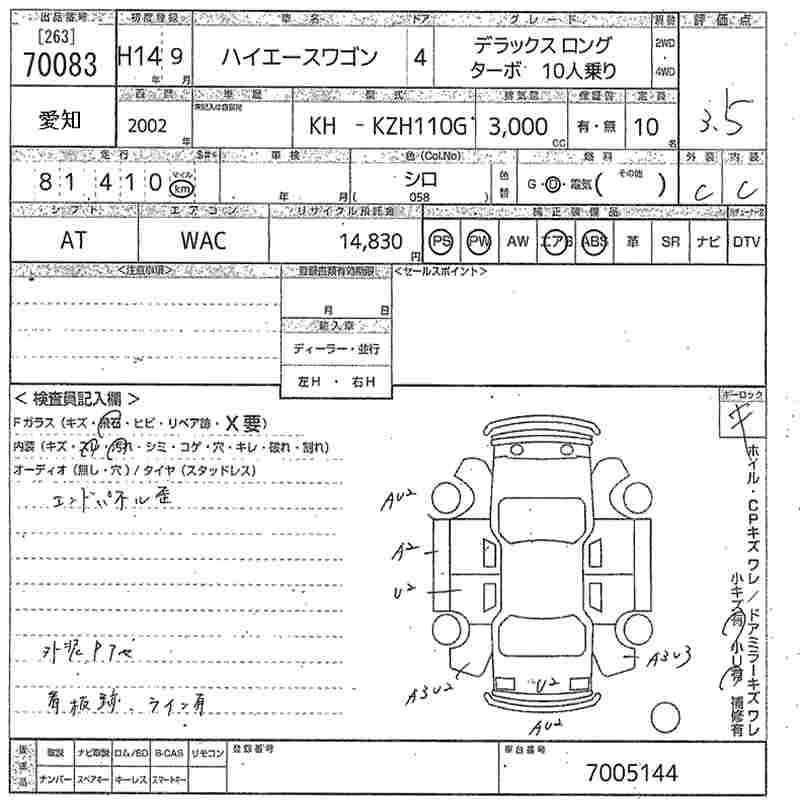 出品番号 初度登録 車名 ドア グレード 評価点
[263]
70083 H14年 9月 ハイエースワゴン 4 デラックス ロング ターボ 10人乗り 2WD・4WD 3.5
愛知
2002年 KH - KZH110G 3,000cc 有・無 10名
走行 車検 色(Col.No) 色替 燃料 外装 内装
81410 マイル km 年 月 シロ ( 058 ) G・D・電気( その他 ) C C
シフト エアコン リサイクル預託金 純正装備品
AT WAC 14,830円 PS PW AW エアB ABS 革 SR ナビ DTV
<注意事項> 登録書類有効期限 <セールスポイント>
月 日
輸入車
ディーラー・並行
左H ・ 右H
< 検査員記入欄 >
Fガラス (キズ・飛石・ヒビ・リペア跡・X要)
内装 (キズ・汚れ・シミ・コゲ・穴・キレ・破れ・割れ)
オーディオ (無し・穴) / タイヤ (スタッドレス)
エンドパネル歪
AU2
A2
U2
A3U2
U2
A3U3
AU2
看板跡、ライン有
ホイル・CPキズ ワレ / ドアミラーキズ ワレ
小キズ有 小U有 補修有
取説 ナビ取説 ロム/SD B-CAS リモコン 登録番号 車台番号
ナンバー スペアキー キーレス スマートキー
7005144